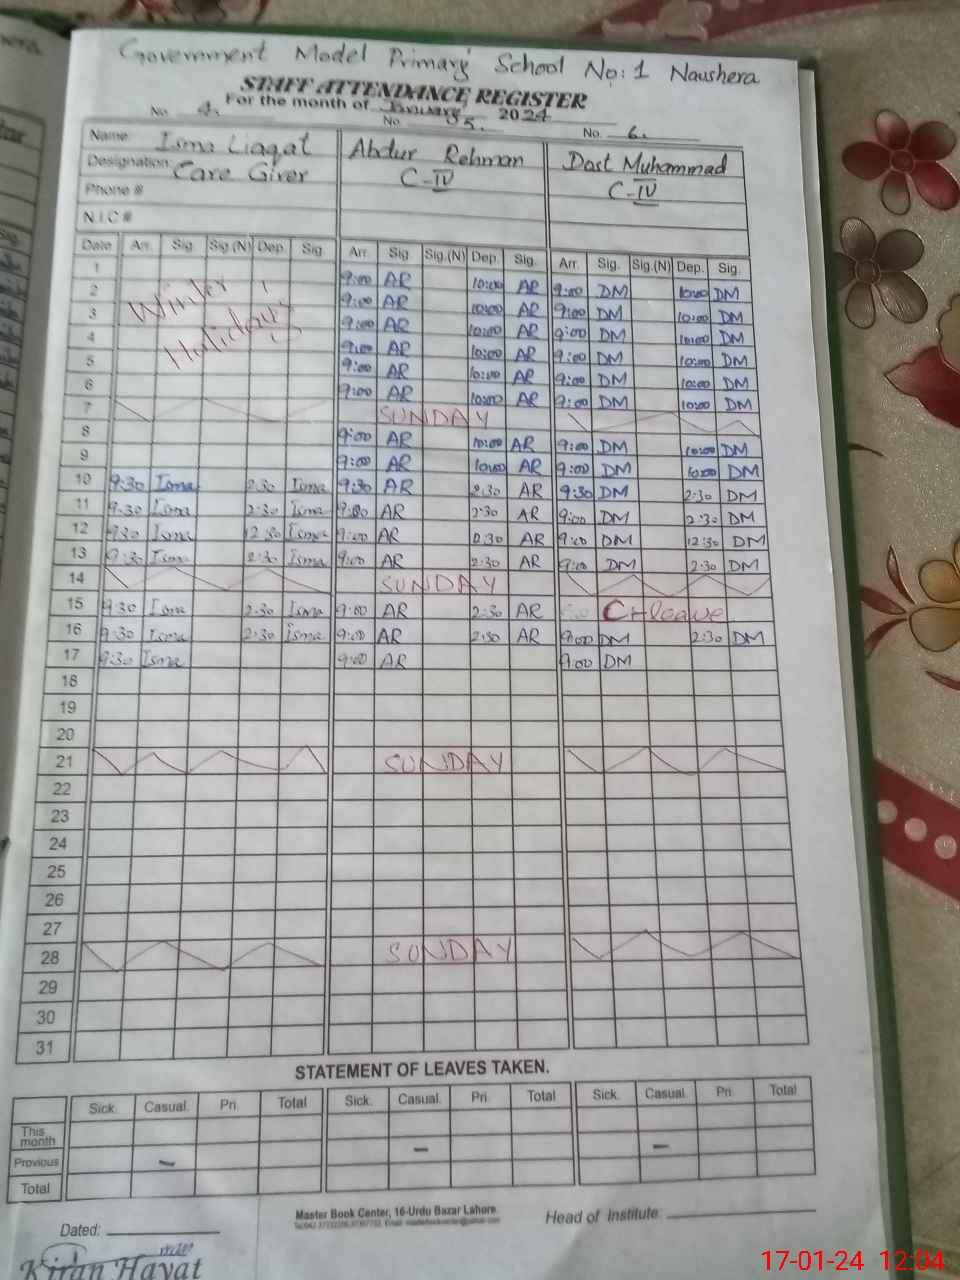 Government Model Primary School No:1 Naushera
STAFF ATTENDANCE REGISTER
For the month of January, 2024
No. 4. No. 5. No. 6.
Name: Isma Liaqat Abdur Rehman Dost Muhammad
Designation: Care Giver C-IV C-IV
Phone #
N I C #
Date Arr. Sig. Sig.(N) Dep. Sig. Arr. Sig. Sig.(N) Dep. Sig. Arr. Sig. Sig.(N) Dep. Sig.
Winter
Holidays
1 9:00 AR 10:00 AR 9:00 DM 10:00 DM
2 9:00 AR 10:00 AR 9:00 DM 10:00 DM
3 9:00 AR 10:00 AR 9:00 DM 10:00 DM
4 9:00 AR 10:00 AR 9:00 DM 10:00 DM
5 9:00 AR 10:00 AR 9:00 DM 10:00 DM
6 9:00 AR 10:00 AR 9:00 DM 10:00 DM
7 SUNDAY
8 9:00 AR 10:00 AR 9:00 DM 10:00 DM
9 9:00 AR 10:00 AR 9:00 DM 10:00 DM
10 9:30 Isma 2:30 Isma 9:30 AR 2:30 AR 9:30 DM 2:30 DM
11 9:30 Isma 2:30 Isma 9:00 AR 2:30 AR 9:00 DM 2:30 DM
12 9:30 Isma 12:30 Isma 9:00 AR AR 9:00 DM 12:30 DM
13 9:30 Isma 2:30 Isma 9:00 AR 2:30 AR 9:00 DM 2:30 DM
14 SUNDAY
15 9:30 Isma 2:30 Isma 9:00 AR 2:30 AR leave
16 9:30 Isma 2:30 Isma 9:00 AR 2:30 AR 9:00 DM 2:30 DM
17 9:30 Isma 9:00 AR 9:00 DM
18
19
20
21 SUNDAY
22
23
24
25
26
27
28 SUNDAY
29
30
31
STATEMENT OF LEAVES TAKEN.
Sick. Casual. Pri. Total Sick. Casual. Pri. Total Sick. Casual. Pri. Total
This month
Previous – – –
Total
Master Book Center, 16-Urdu Bazar Lahore.
Dated: Head of Institute:
Kiran Hayat
17-01-24 12:04